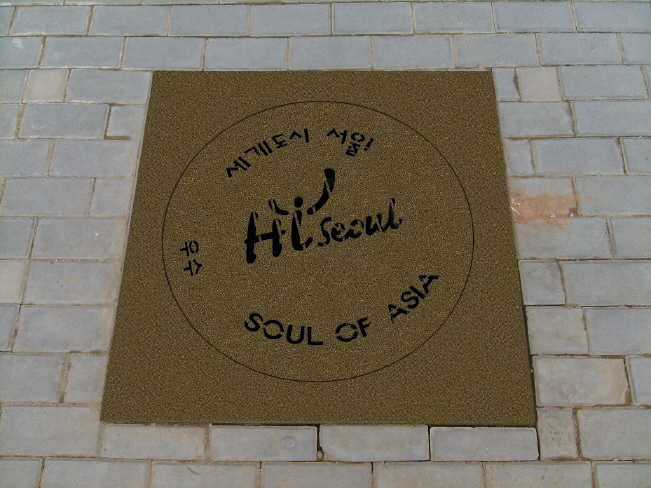 세계도시 서울!
Hi Seoul
우수
SOUL OF ASIA